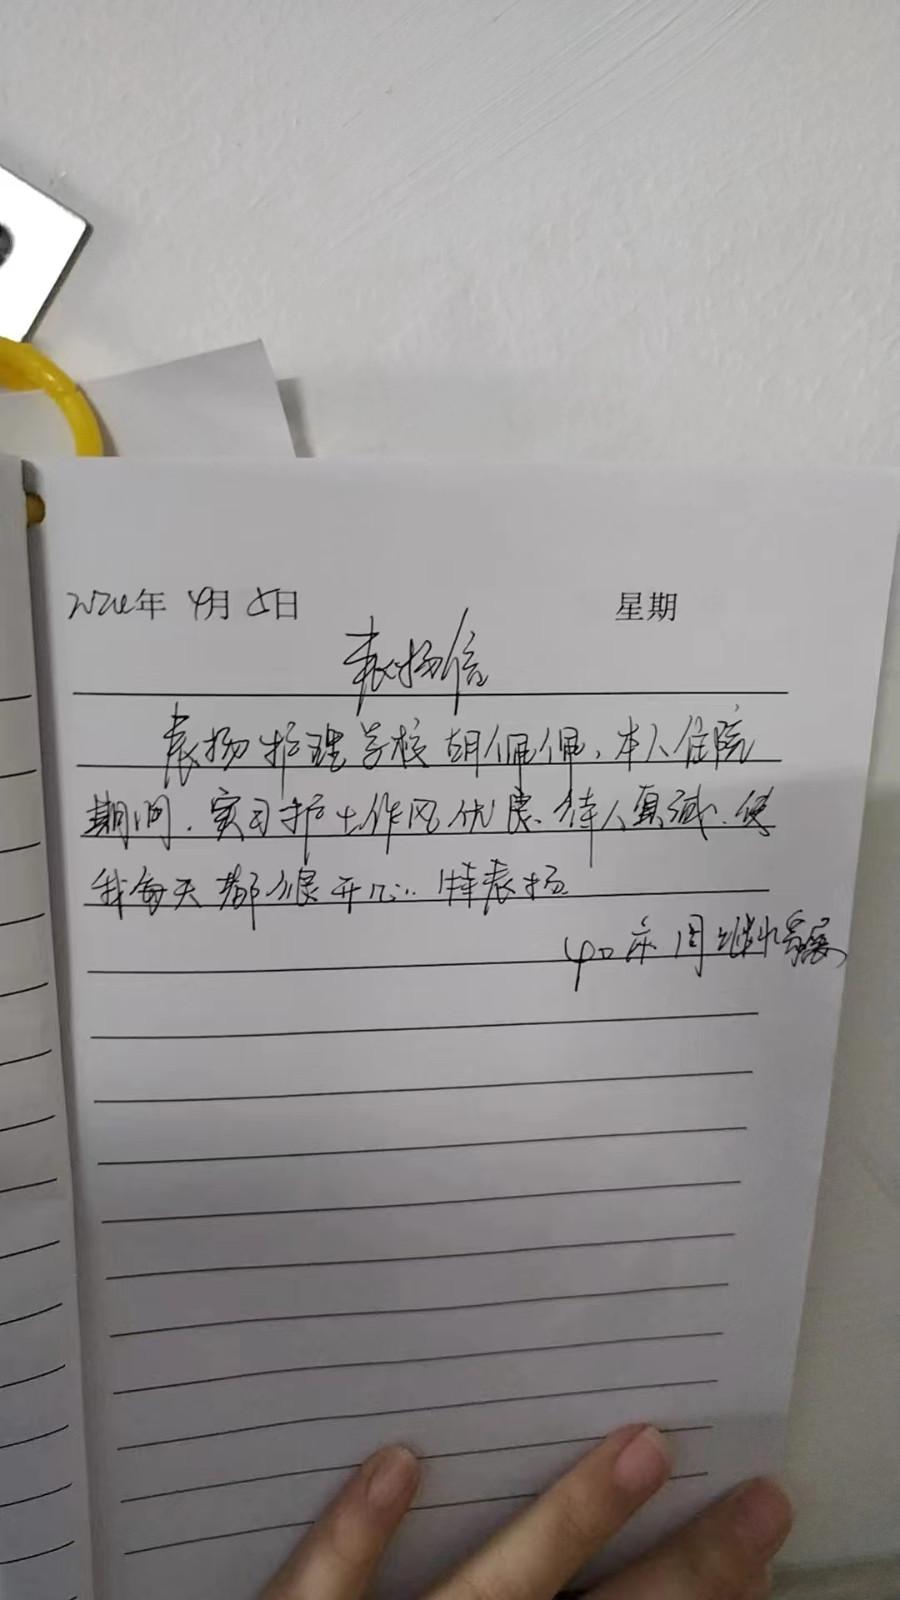 2024年 4月 5日 星期
表扬信
表扬护理学校胡佩佩，本人住院
期间，实习护士作风优良、待人真诚、使
我每天都很开心… 特表扬
40床 周继